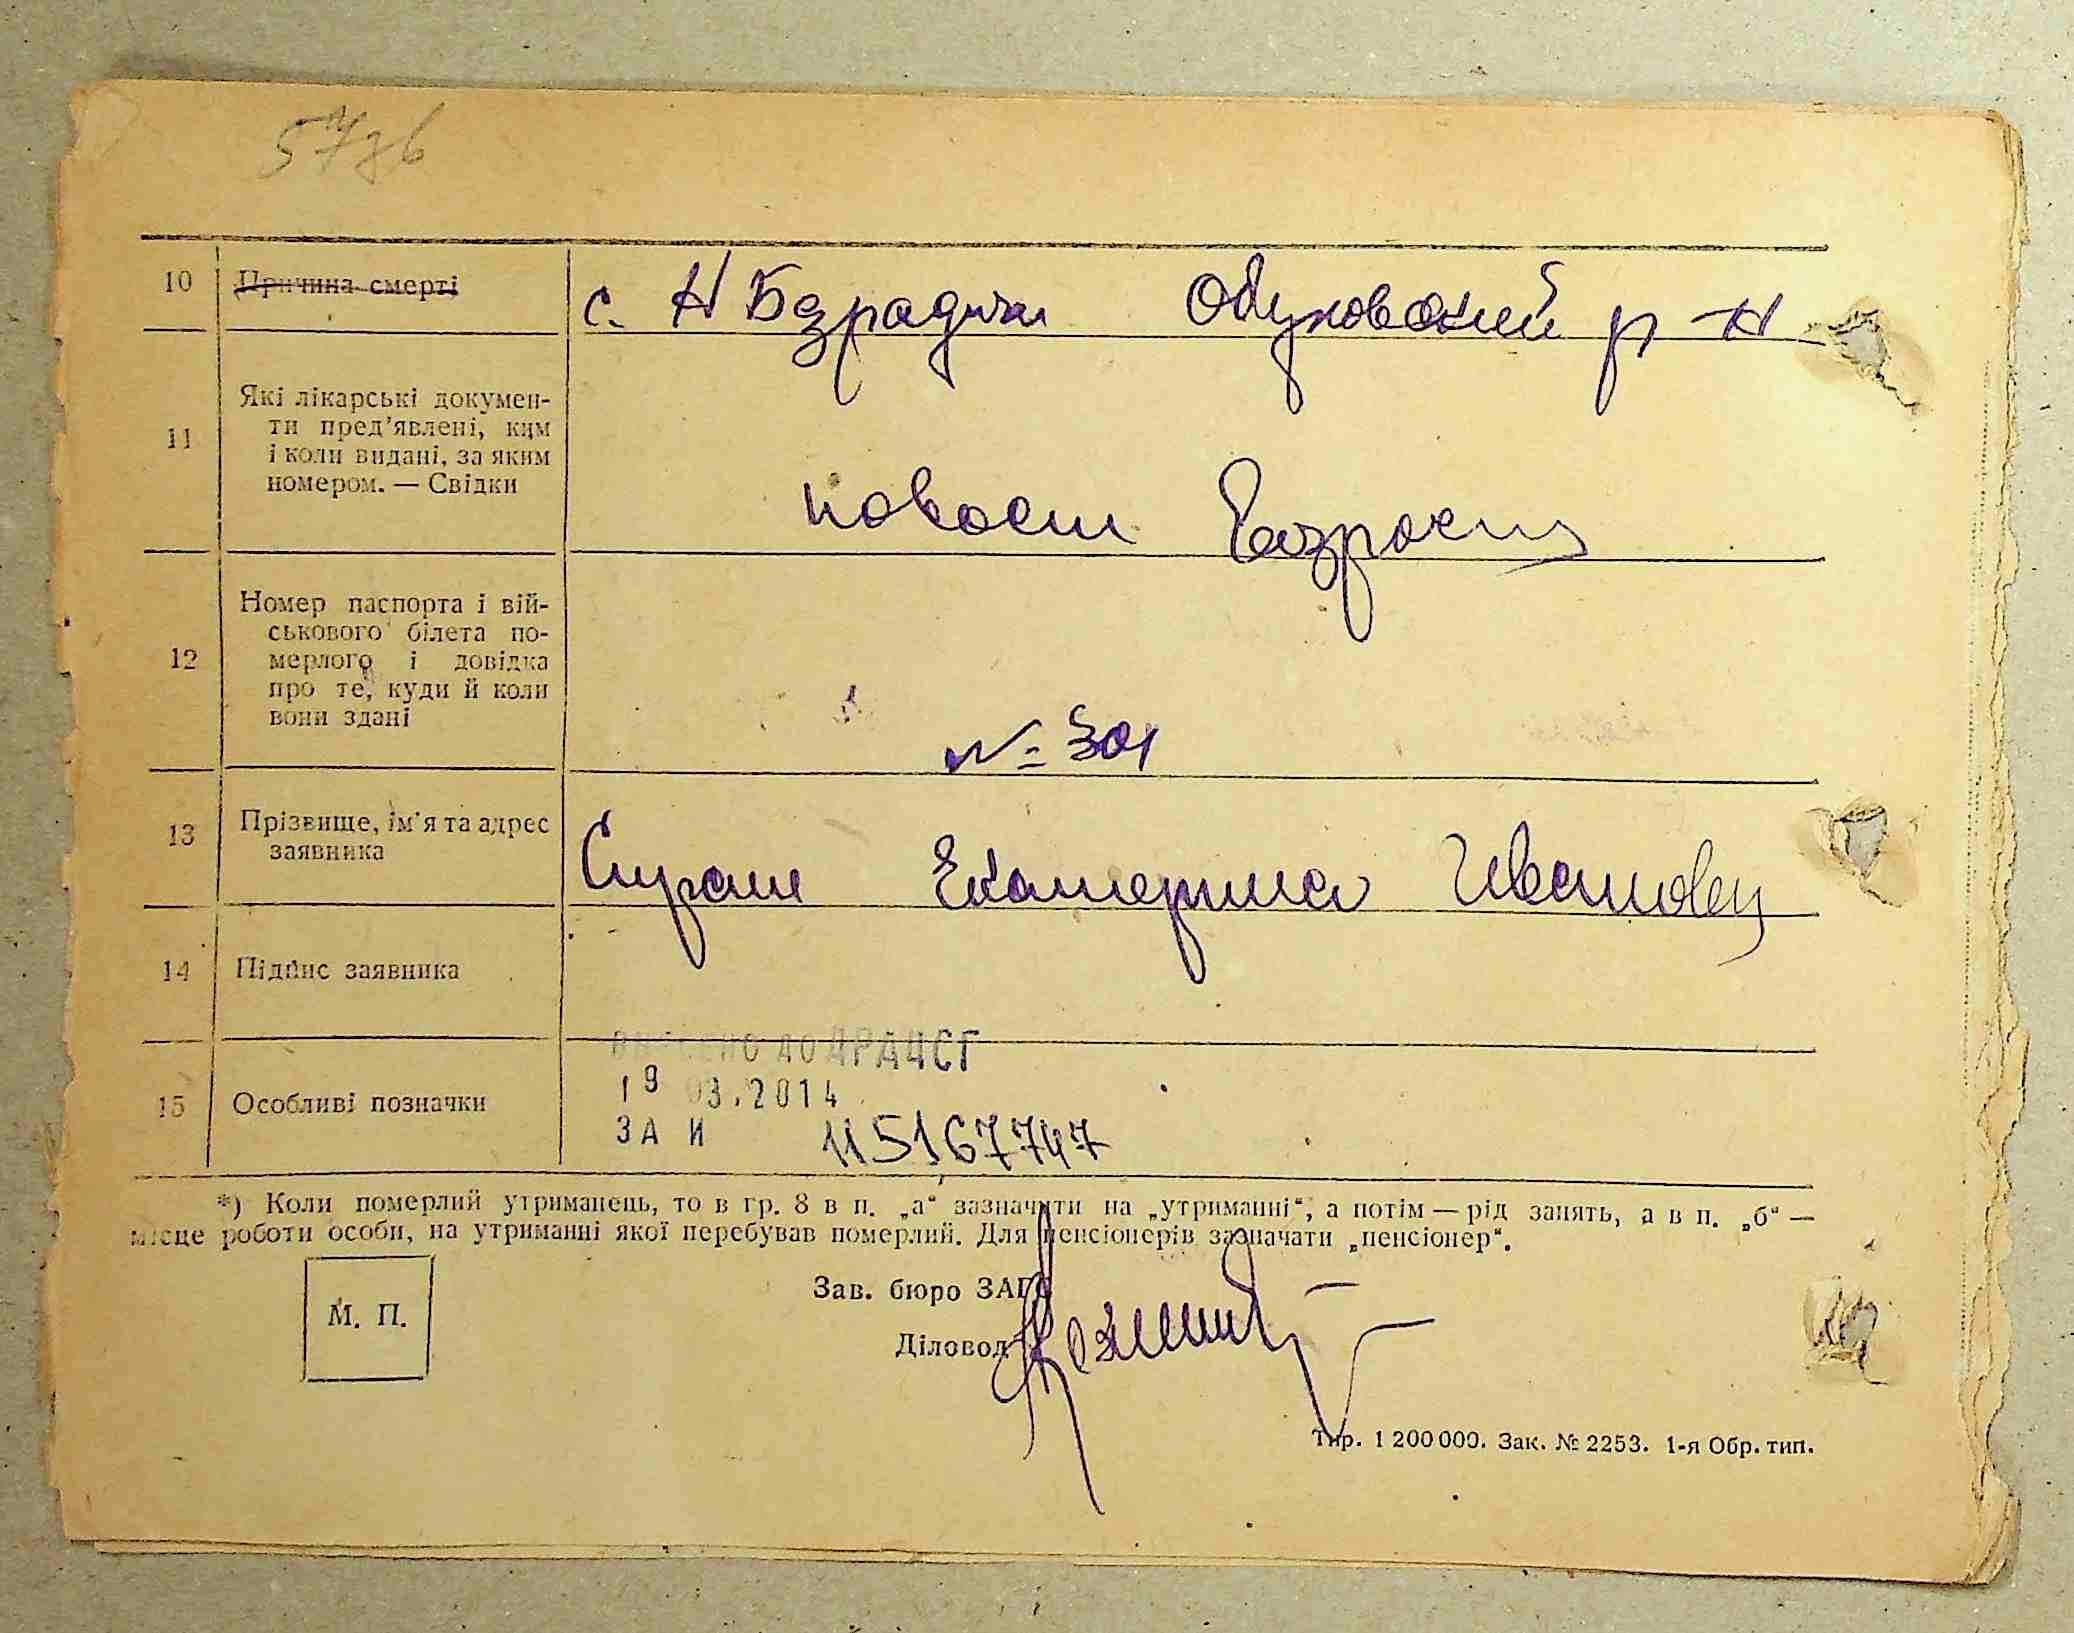 57зв
10 Причина смерті с. Н Безрадичи Обуховский р-н
11 Які лікарські документи пред'явлені, ким
і коли видані, за яким
номером. — Свідки
12 Номер паспорта і вій-
ськового білета по-
мерлого і довідка
про те, куди й коли
вони здані
№ 301
13 Прізвище, ім'я та адрес
заявника Екатерина
14 Підпис заявника
ДРАЦСГ
15 Особливі позначки 19 03.2014
ЗА И 115167747
*) Коли померлий утриманець, то в гр. 8 в п. „а“ зазначити на „утриманні“, а потім — рід занять, а в п. „б“ —
місце роботи особи, на утриманні якої перебував померлий. Для пенсіонерів зазначати „пенсіонер“.
М. П.
Зав. бюро ЗАГС
Діловод
Тир. 1 200 000. Зак. № 2253. 1-я Обр. тип.